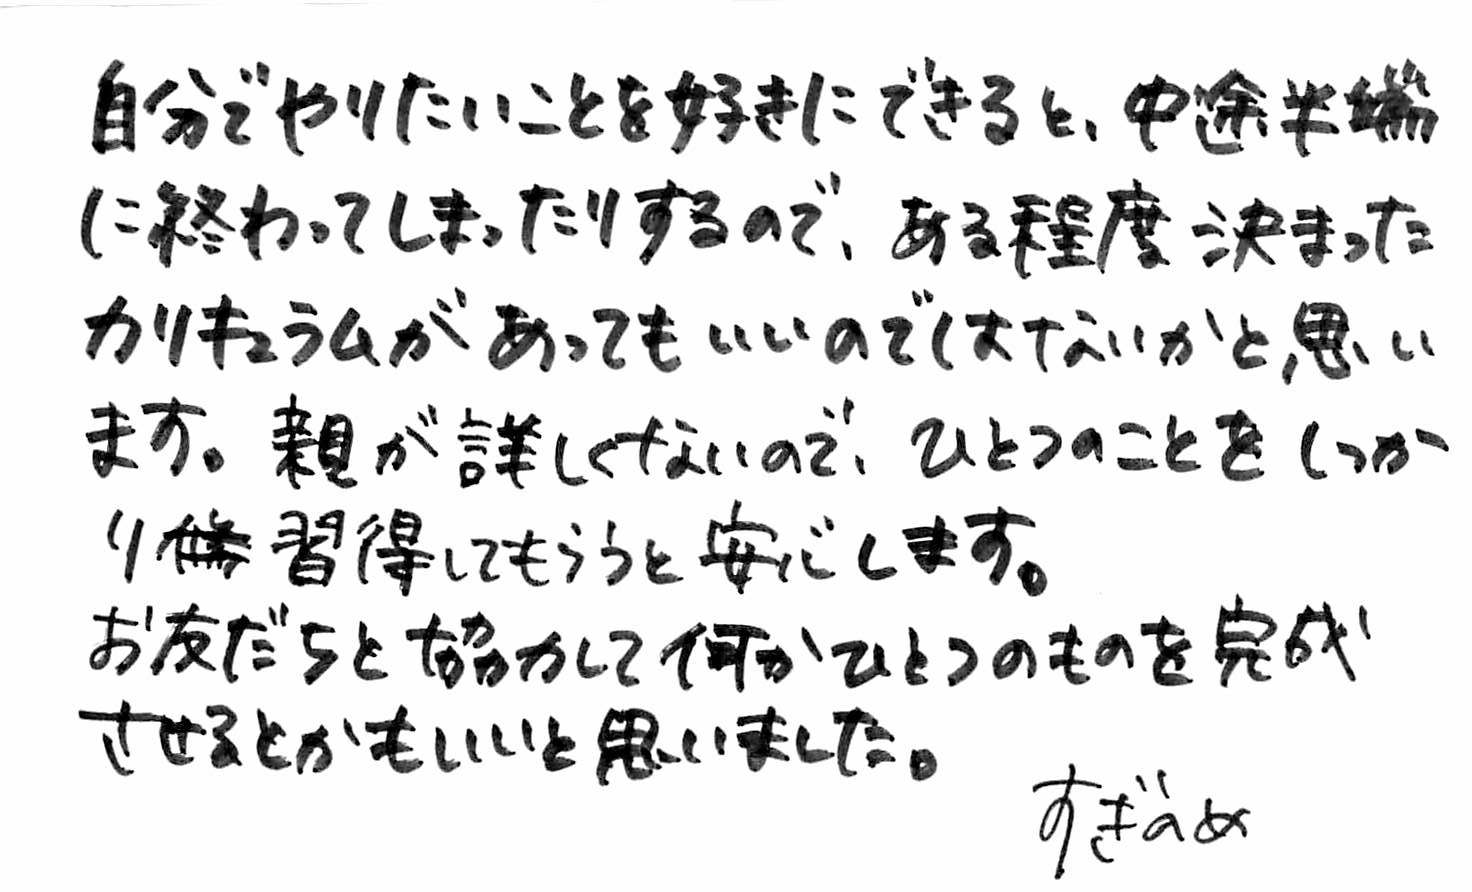 自分でやりたいことを好きにできると、中途半端
に終わってしまったりするので、ある程度決まった
カリキュラムがあってもいいのではないかと思い
ます。親が詳しくないので、ひとつのことをしっか
り習得してもらうと安心します。
お友だちと協力して何かひとつのものを完成
させるとかもいいと思いました。
すぎのめ